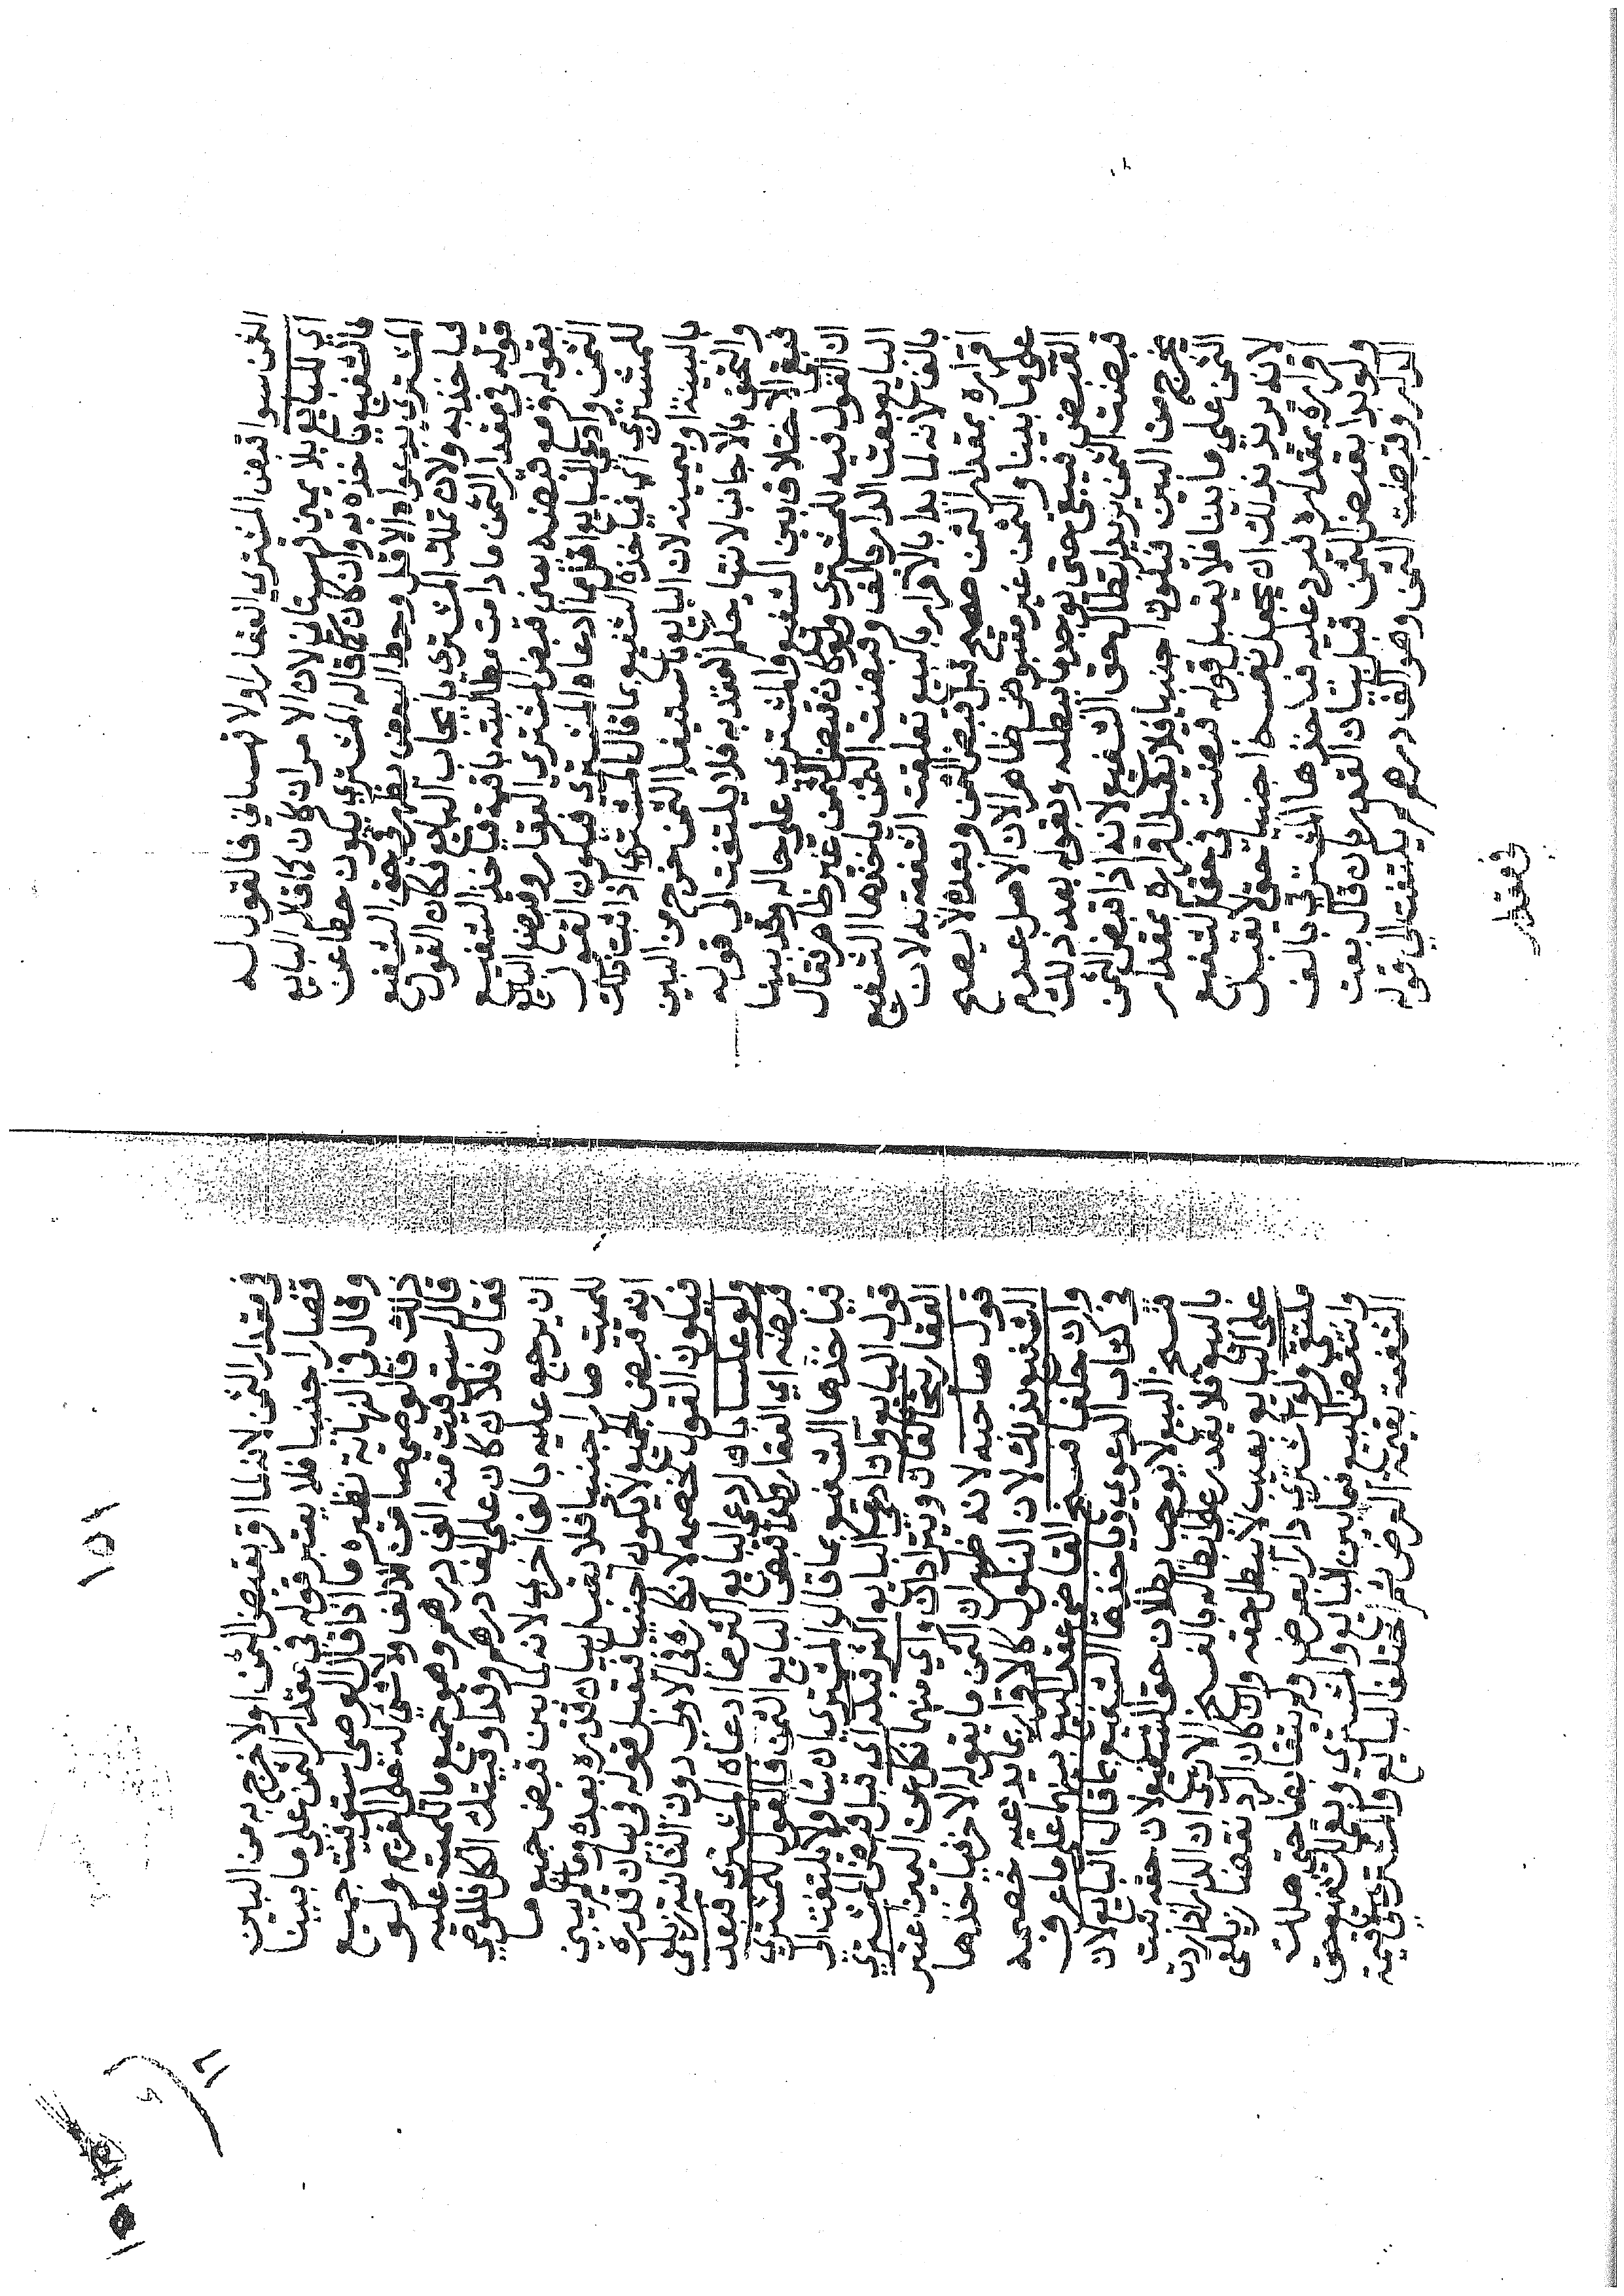 الثمن سوا قبض المشتري العقار او لا قهستاني فالقول له
اي للبايع بلا يمين قهستاني لان الامر ان كان كما قال البايع
فالشفيع ياخذه به وان كان كما قاله المشتري يكون حطا عن
المشتري بدعواه الاقل وحط البعض يظهر في حق الشفيع
فياخذ به ولان تملك المشتري بايجاب البايع فكان القول
قوله في مقدار الثمن ما دامت مطالبته باقية فياخذ الشفيع
بقوله ومع قبضه يعني قبض المشتري العقار وقبض البايع
الثمن وادعى البايع اكثر مما ادعاه المشتري فيكون القول
للمشتري اي فياخذه الشفيع بما قال المشتري اذا ثبت ذلك
بالبينة او بيمينه لان البايع باستيفاء الثمن خرج من البين
والتحق بالاجانب لانتهاء حكم العقد به فلا يلتفت الى قوله
فبقي الاختلاف بين الشفيع والمشتري على حاله وقد بينا
ان القول فيه للمشتري ولو كان قبض الثمن غير ظاهر فقال
البايع بعت الدار بالف وقبضت الثمن ياخذها الشفيع
بالف لانه لما بدا بالاقرار بالبيع تعلقت الشفعة به لان
اقراره بمقدار الثمن صحيح قبل قبض الثمن وبعده لا يصح
على ما بينا والثمن غير مقبوض ظاهرا لان الاصل عدم
القبض فيبقى حتى يوجد ما يبطله وبقوله بعد ذلك
قبضت الثمن يريد ابطال حق الشفيع لانه اذا قبض الثمن
يخرج من البين فيكون اجنبيا فلا يقبل اقراره بمقدار
الثمن على ما بينا فلا يقبل قوله قبضت في حق الشفيع
لانه يريد بذلك ان يجعل نفسه اجنبيا حتى لا يقبل
اقراره بمقداره فيرد عليه فياخذها المشتري بالف
ولو بدا بقبض الثمن قبل بيان القدر بان قال بعت
الدار وقبضت الثمن وهو الف درهم لم يلتفت الى قوله
في مقدار
١٥١
في مقدار الثمن لانه لما اقر بقبض الثمن اولا خرج به من البين
فصار اجنبيا فلا يعتبر قوله في مقدار الثمن على ما بينا
وقال في النهاية نظيره ما اذا قال الوصي استوفيت جميع
ذلك فالوصي ضامن الالف ولا شي له على الغريم ولو
قال استوفيت منه الف درهم وهو جميع ما للميت عليه
فقال فلان كان علي الفا درهم وقد اوفيتك الكل فللوصي
ان يرجع عليه بالف اخرى لانه لما بين قبض جميع ما
للميت صار اجنبيا فلا يقبل بيان قدره بعده وما لم يبين
انه قبض الجميع لا يكون اجنبيا فيقبل قوله في بيان قدره
فيكون القول لخصمه لانكاره في الاولى دون الثانية زيلعي
ولو عكسا بان ادعى البايع اكثر مما ادعاه المشتري فبعد
قبضه اي العقار قبض البايع الثمن فالقول للمشتري
فياخذها الشفيع بما قال المشتري ان شا ولا يلتفت الى
قول البايع وان ادعى البايع اكثر قبله اي قبل قبض المشتري
العقار تحالفان ويترادان واي منهما نكل عن اليمين اعتبر
قول صاحبه لانه ظهر ان الثمن ما يقوله الاخر فياخذها
الشفيع بذلك لان النكول كالاقرار بما يدعيه خصمه
وان حلفا فسخ القاضي عقد البيع بينهما على ما عرف
في كتاب الدعوى وياخذها الشفيع بما قال البايع لان
فسخ البيع لا يوجب بطلان حق الشفيع لان حقه ثبت
بالبيع فلا يقدر على ابطاله بالفسخ الا يرى ان الدار اذا ردت
على البايع بعيب لا يبطل حقه وان كان الرد بقضا زيلعي
ملتقى ولو اشترى دارا بعرض ولم يتقابضا حتى هلك
وانتقض البيع فيما بين البايع والمشتري وبقي للشفيع حق
الشفعة بقيمة العرض ثم اختلف البايع والمشتري في قيمة